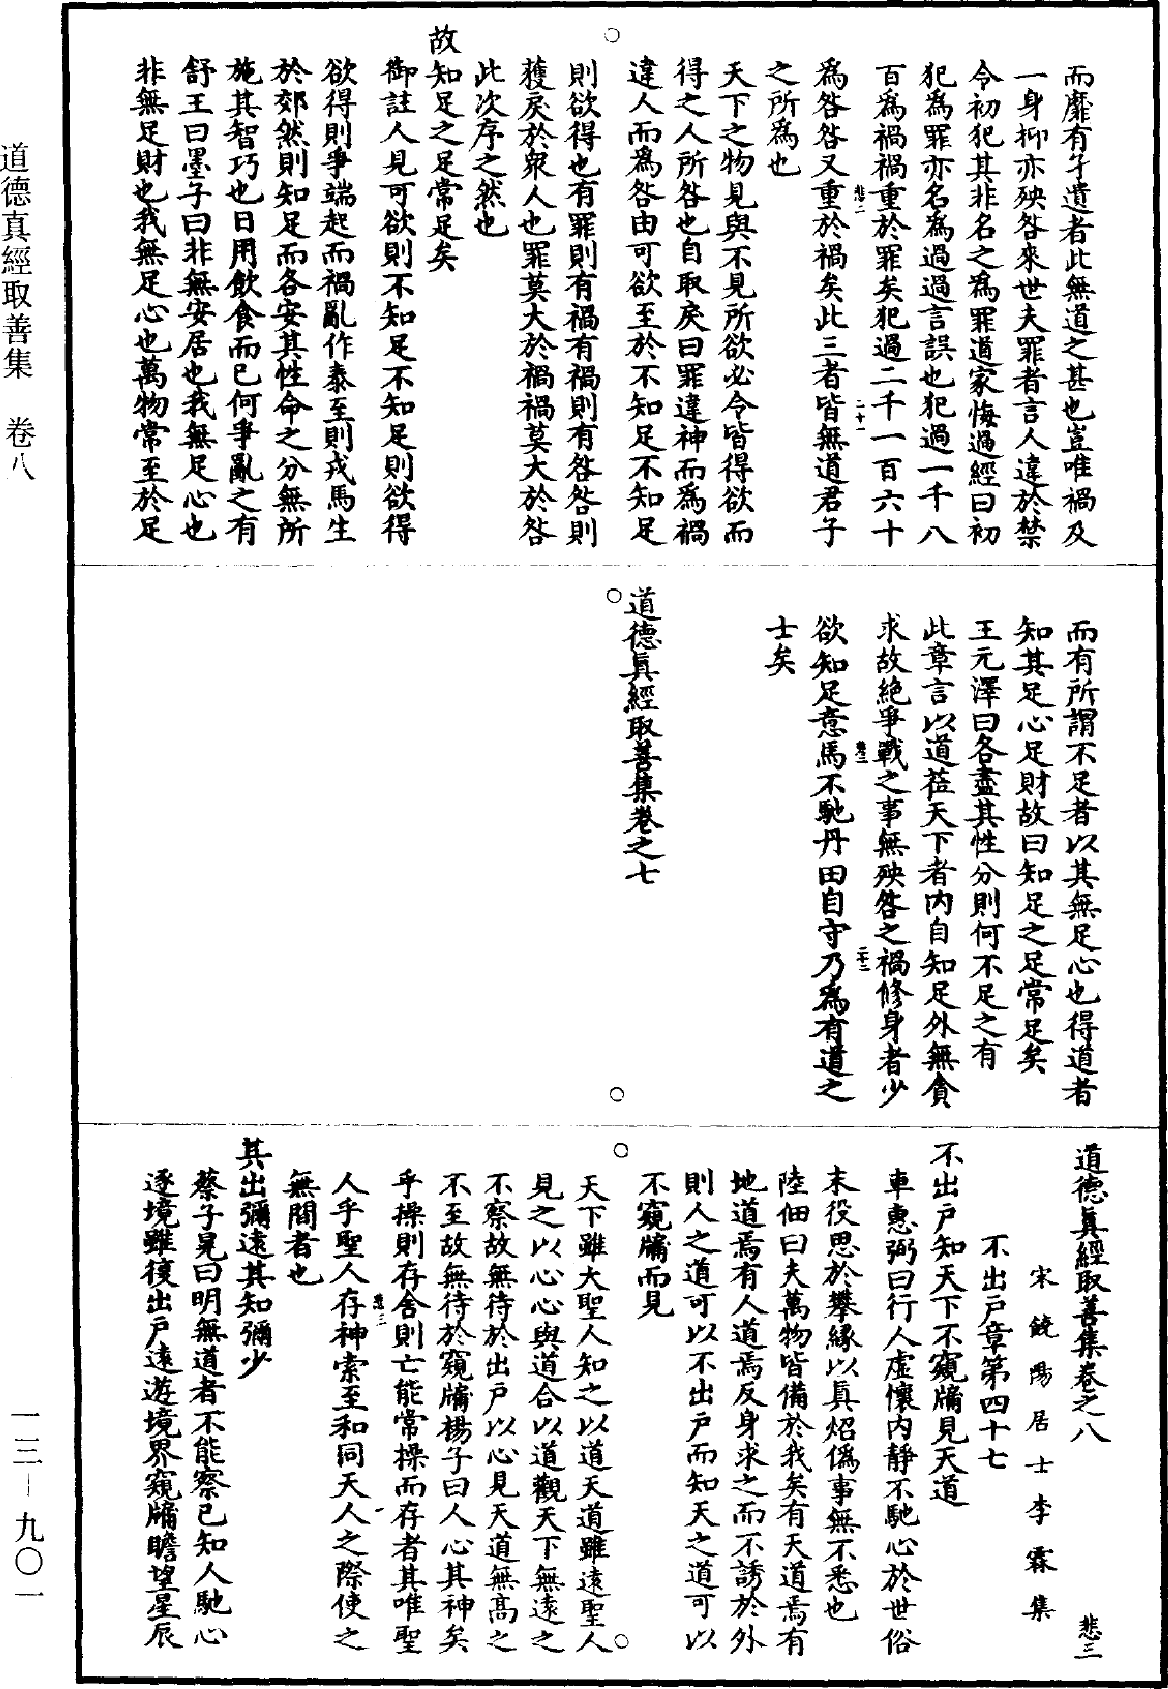 而靡有孑遺者此無道之甚也豈唯禍及
一身抑亦殃咎來世夫罪者言人違於禁
令初犯其非名之為罪道家悔過經曰初
犯為罪亦名為過過言誤也犯過一千八
百為禍禍重於罪矣犯過二千一百六十
悲二
二十一
為咎咎又重於禍矣此三者皆無道君子
之所為也
天下之物見與不見所欲必令皆得欲而
得之人所咎也自取戾曰罪違神而為禍
違人而為咎由可欲至於不知足不知足
則欲得也有罪則有禍有禍則有咎咎則
獲戾於眾人也罪莫大於禍禍莫大於咎
此次序之然也
故知足之足常足矣
御註人見可欲則不知足不知足則欲得
欲得則爭端起而禍亂作泰至則戎馬生
於郊然則知足而各安其性命之分無所
施其智巧也日用飲食而已何爭亂之有
舒王曰墨子曰非無安居也我無足心也
非無足財也我無足心也萬物常至於足
而有所謂不足者以其無足心也得道者
知其足心足財故曰知足之足常足矣
王元澤曰各盡其性分則何不足之有
此章言以道莅天下者內自知足外無貪
求故絕爭戰之事無殃咎之禍修身者少
悲二
二十二
欲知足意馬不馳丹田自守乃為有道之
士矣
道德真經取善集卷之七
道德真經取善集卷之八
悲三
宋饒陽居士李霖集
不出戶章第四十七
不出戶知天下不窺牖見天道
車惠弼曰行人虛懷內靜不馳心於世俗
末役思於攀緣以真炤偽事無不悉也
陸佃曰夫萬物皆備於我矣有天道焉有
地道焉有人道焉反身求之而不誘於外
則人之道可以不出戶而知天之道可以
不窺牖而見
天下雖大聖人知之以道天道雖遠聖人
見之以心心與道合以道觀天下無遠之
不察故無待於出戶以心見天道無高之
不至故無待於窺牖楊子曰人心其神矣
乎操則存舍則亡能常操而存者其唯聖
悲三
一
人乎聖人存神索至和同天人之際使之
無間者也
其出彌遠其知彌少
蔡子晃曰明無道者不能察己知人馳心
逐境雖復出戶遠遊境界窺牖瞻望星辰
道德真經取善集　卷八
一三－九〇一